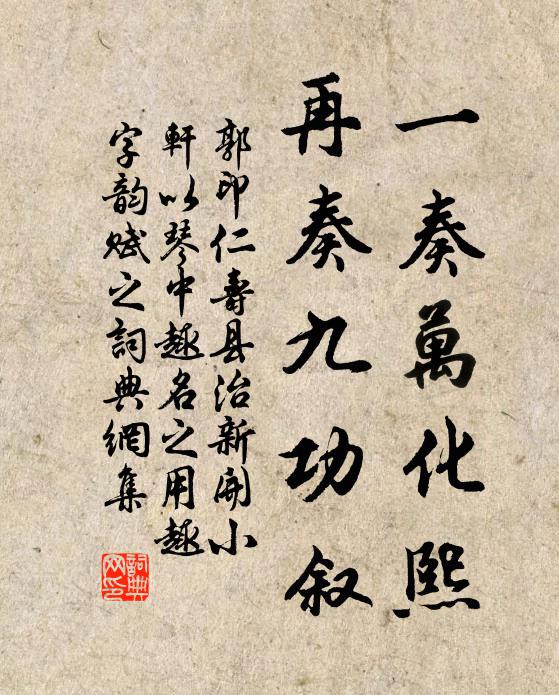 一奏萬化熙
再奏九功叙
郭印仁壽县治新開小
軒以琴中趣名之用趣
字韵赋之詞典網集
詞典网印